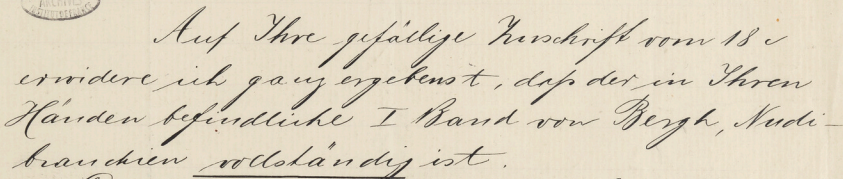 Auf Ihre gefällige Zuschrift vom 18 c
erwidere ich ganz ergebenst, daß der in Ihren
Händen befindliche I Band von Bergh, Nudi-
branchien vollständig ist.